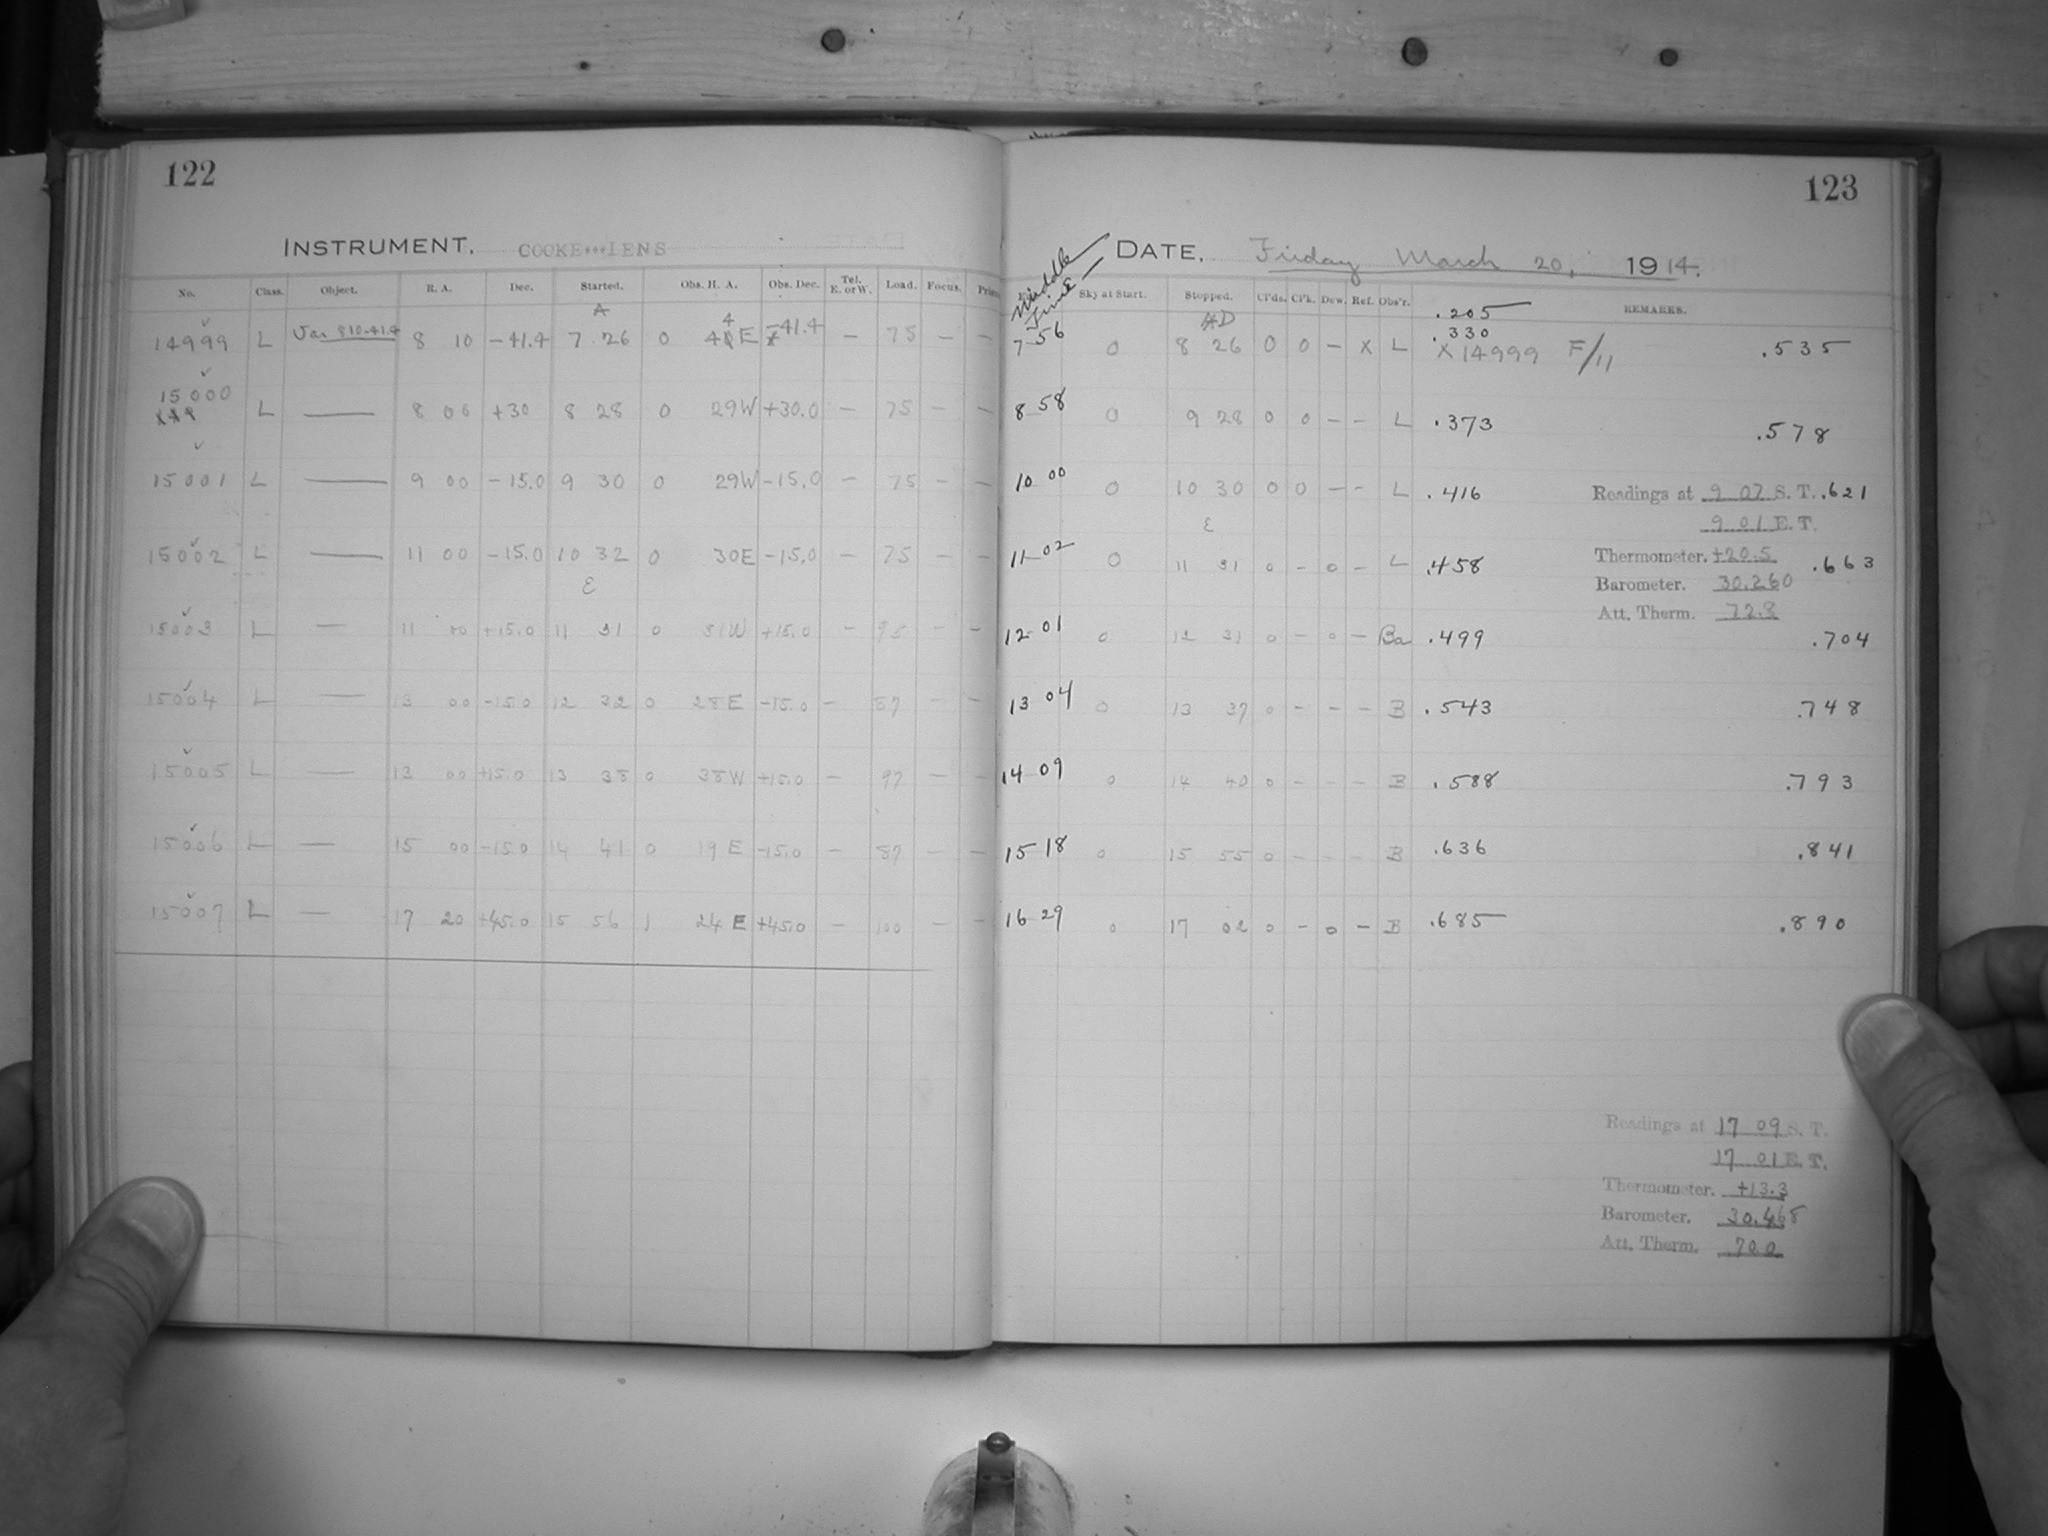 122
INSTRUMENT. COOKE LENS
No. Class. Object. R. A. Dec. Started. Obs. H. A. Obs. Dec. Tel. E. or W. Load. Focus.
A
14999 L Var 810-41.4 8 10 -41.4 7 26 0 4 E -41.4 — 75 — —
15000 L —— 8 06 +30 8 28 0 29W +30.0 — 75 — —
15001 L —— 9 00 -15.0 9 30 0 29W -15.0 — 75 — —
15002 L —— 11 00 -15.0 10 32 0 30E -15.0 — 75 — —
E
15003 L — 11 00 +15.0 11 31 0 31W +15.0 — 95 — —
15004 L — 13 00 -15.0 12 32 0 28E -15.0 — 87 — —
15005 L — 13 00 +15.0 13 38 0 38W +15.0 — 97 — —
15006 L — 15 00 -15.0 14 41 0 19E -15.0 — 87 — —
15007 L — 17 20 +45.0 15 56 1 24 E +45.0 — 100 — —
123
Middle Time
DATE. Friday March 20, 1914.
Sky at Start. Stopped. Cl'ds. Cl'k. Dew. Ref. Obs'r. REMARKS.
.205
.330
7 56 0 8 26 0 0 — X L X 14999 F/11 .535
8 58 0 9 28 0 0 — — L .373 .578
10 00 0 10 30 0 0 — — L .416 Readings at 9 07 S. T. .621
E
9 01 E. T.
11 02 0 11 31 0 — 0 — L .458 Thermometer. +20.5 .663
Barometer. 30.260
Att. Therm. 72.8
12 01 0 12 31 0 — 0 — Ba .499 .704
13 04 0 13 37 0 — — — B .543 .748
14 09 0 14 40 0 — — — B .588 .793
15 18 0 15 55 0 — — — B .636 .841
16 29 0 17 02 0 — 0 — B .685 .890
Readings at 17 09 S. T.
17 01 E. T.
Thermometer. +13.3
Barometer. 30.468
Att. Therm. 70.0